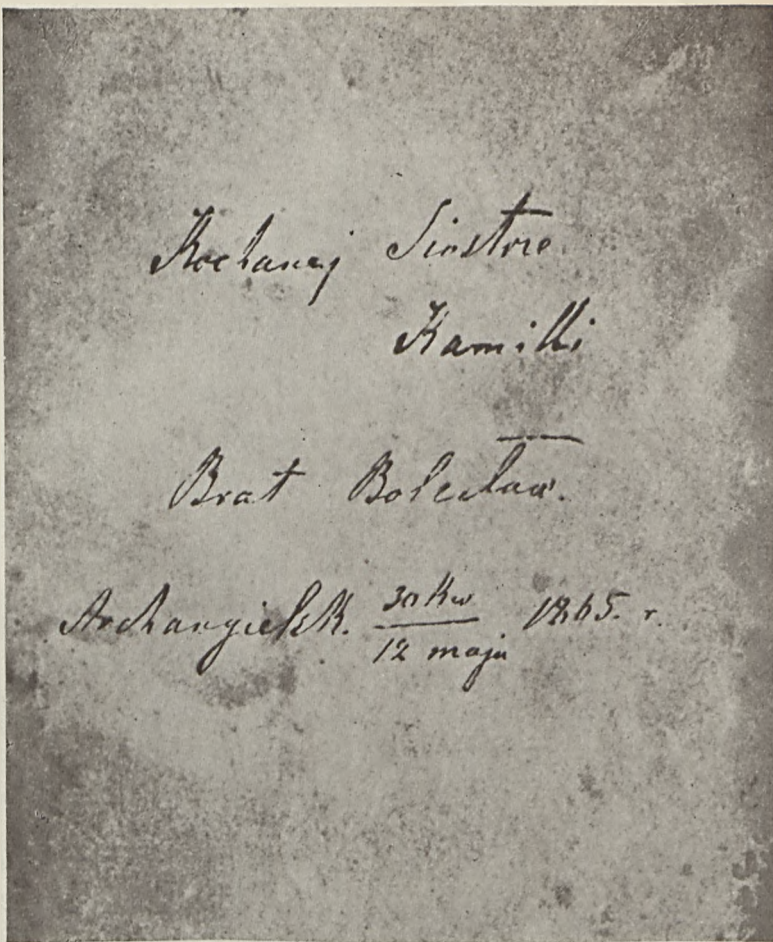 Kochanej Siostrze
Kamilli
Brat Bolesław.
Archangielsk. 30 Kw / 12 maja 1865. r.